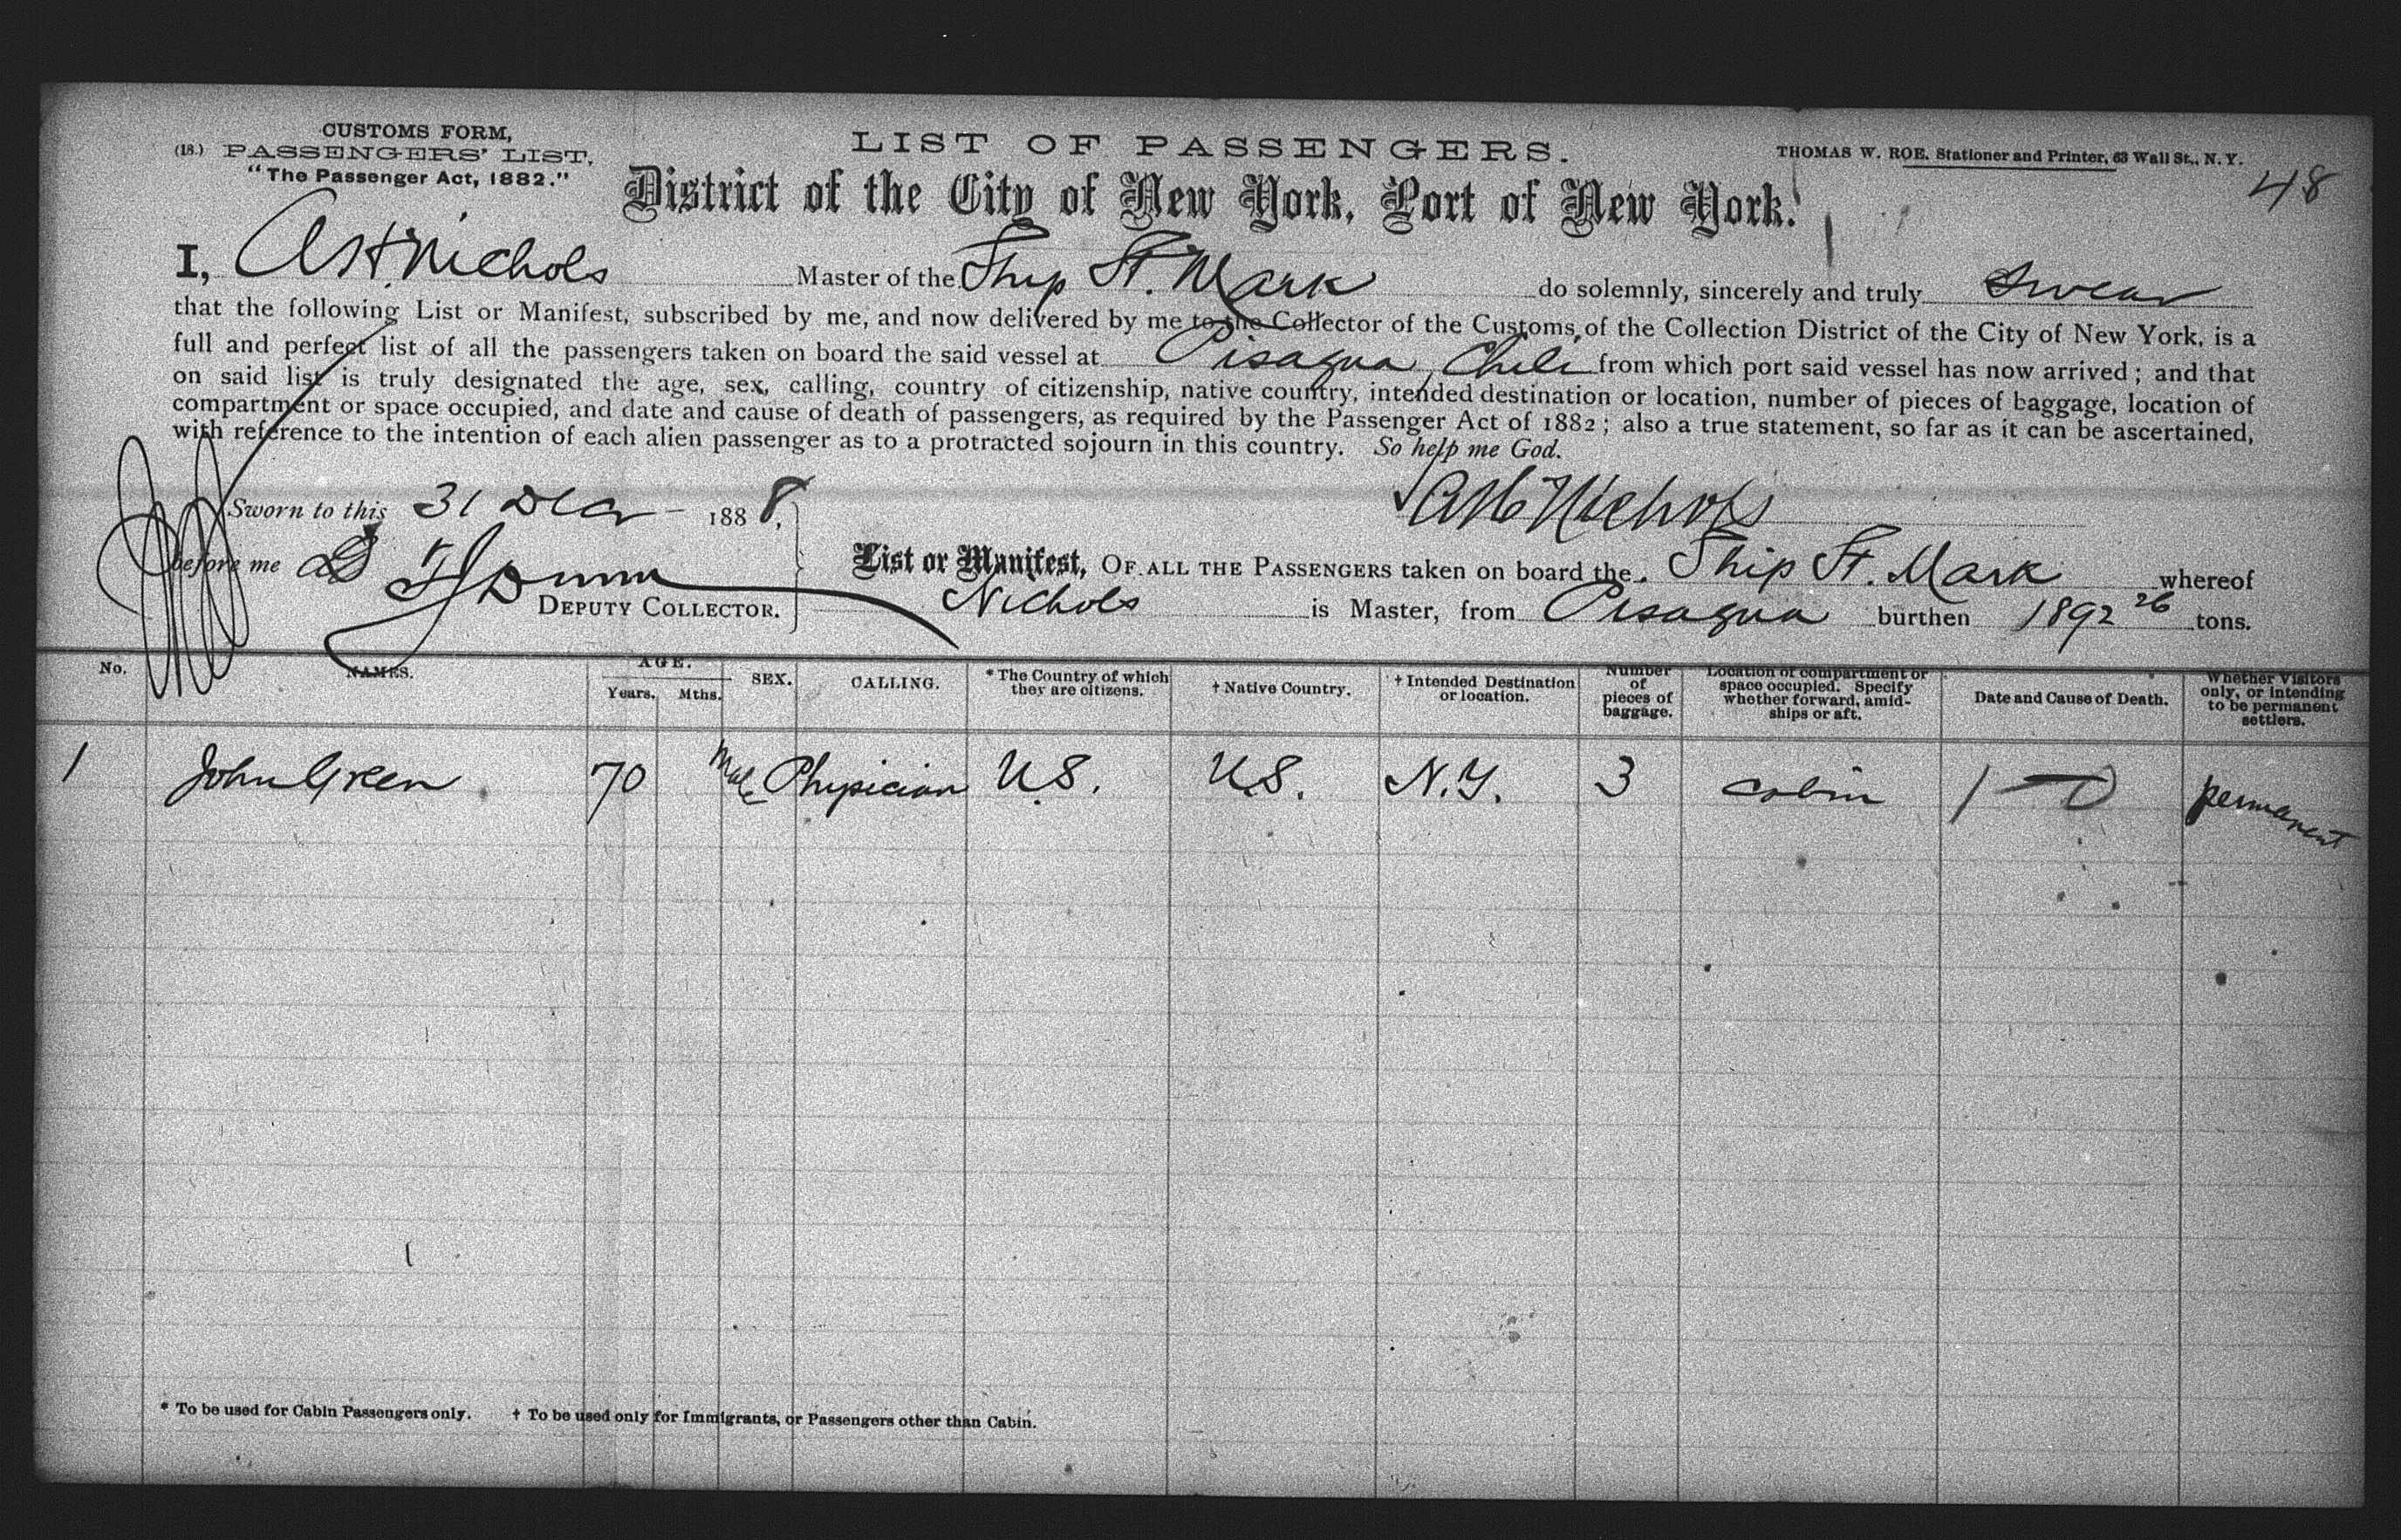 CUSTOMS FORM,
(18.) PASSENGERS' LIST,
"The Passenger Act, 1882."
LIST OF PASSENGERS.
THOMAS W. ROE, Stationer and Printer, 63 Wall St., N. Y.
48
District of the City of New York, Port of New York.
I, Nichols Master of the Ship St. Mark do solemnly, sincerely and truly Swear
that the following List or Manifest, subscribed by me, and now delivered by me to the Collector of the Customs of the Collection District of the City of New York, is a
full and perfect list of all the passengers taken on board the said vessel at Pisagua, Chili from which port said vessel has now arrived; and that
on said list is truly designated the age, sex, calling, country of citizenship, native country, intended destination or location, number of pieces of baggage, location of
compartment or space occupied, and date and cause of death of passengers, as required by the Passenger Act of 1882; also a true statement, so far as it can be ascertained,
with reference to the intention of each alien passenger as to a protracted sojourn in this country. So help me God.
Nichols
Sworn to this 31 Decr 1888,
before me Dunn
DEPUTY COLLECTOR.
List or Manifest, OF ALL THE PASSENGERS taken on board the Ship St. Mark whereof
Nichols is Master, from Pisagua burthen 1892 26 tons.
No. NAMES. AGE. Years. Mths. SEX. CALLING. * The Country of which they are citizens. † Native Country. † Intended Destination or location. Number of pieces of baggage. Location of compartment or space occupied. Specify whether forward, amidships or aft. Date and Cause of Death. Whether Visitors only, or intending to be permanent settlers.
1 John Green 70 Male Physician U.S. U.S. N.Y. 3 cabin permanent
* To be used for Cabin Passengers only. † To be used only for Immigrants, or Passengers other than Cabin.